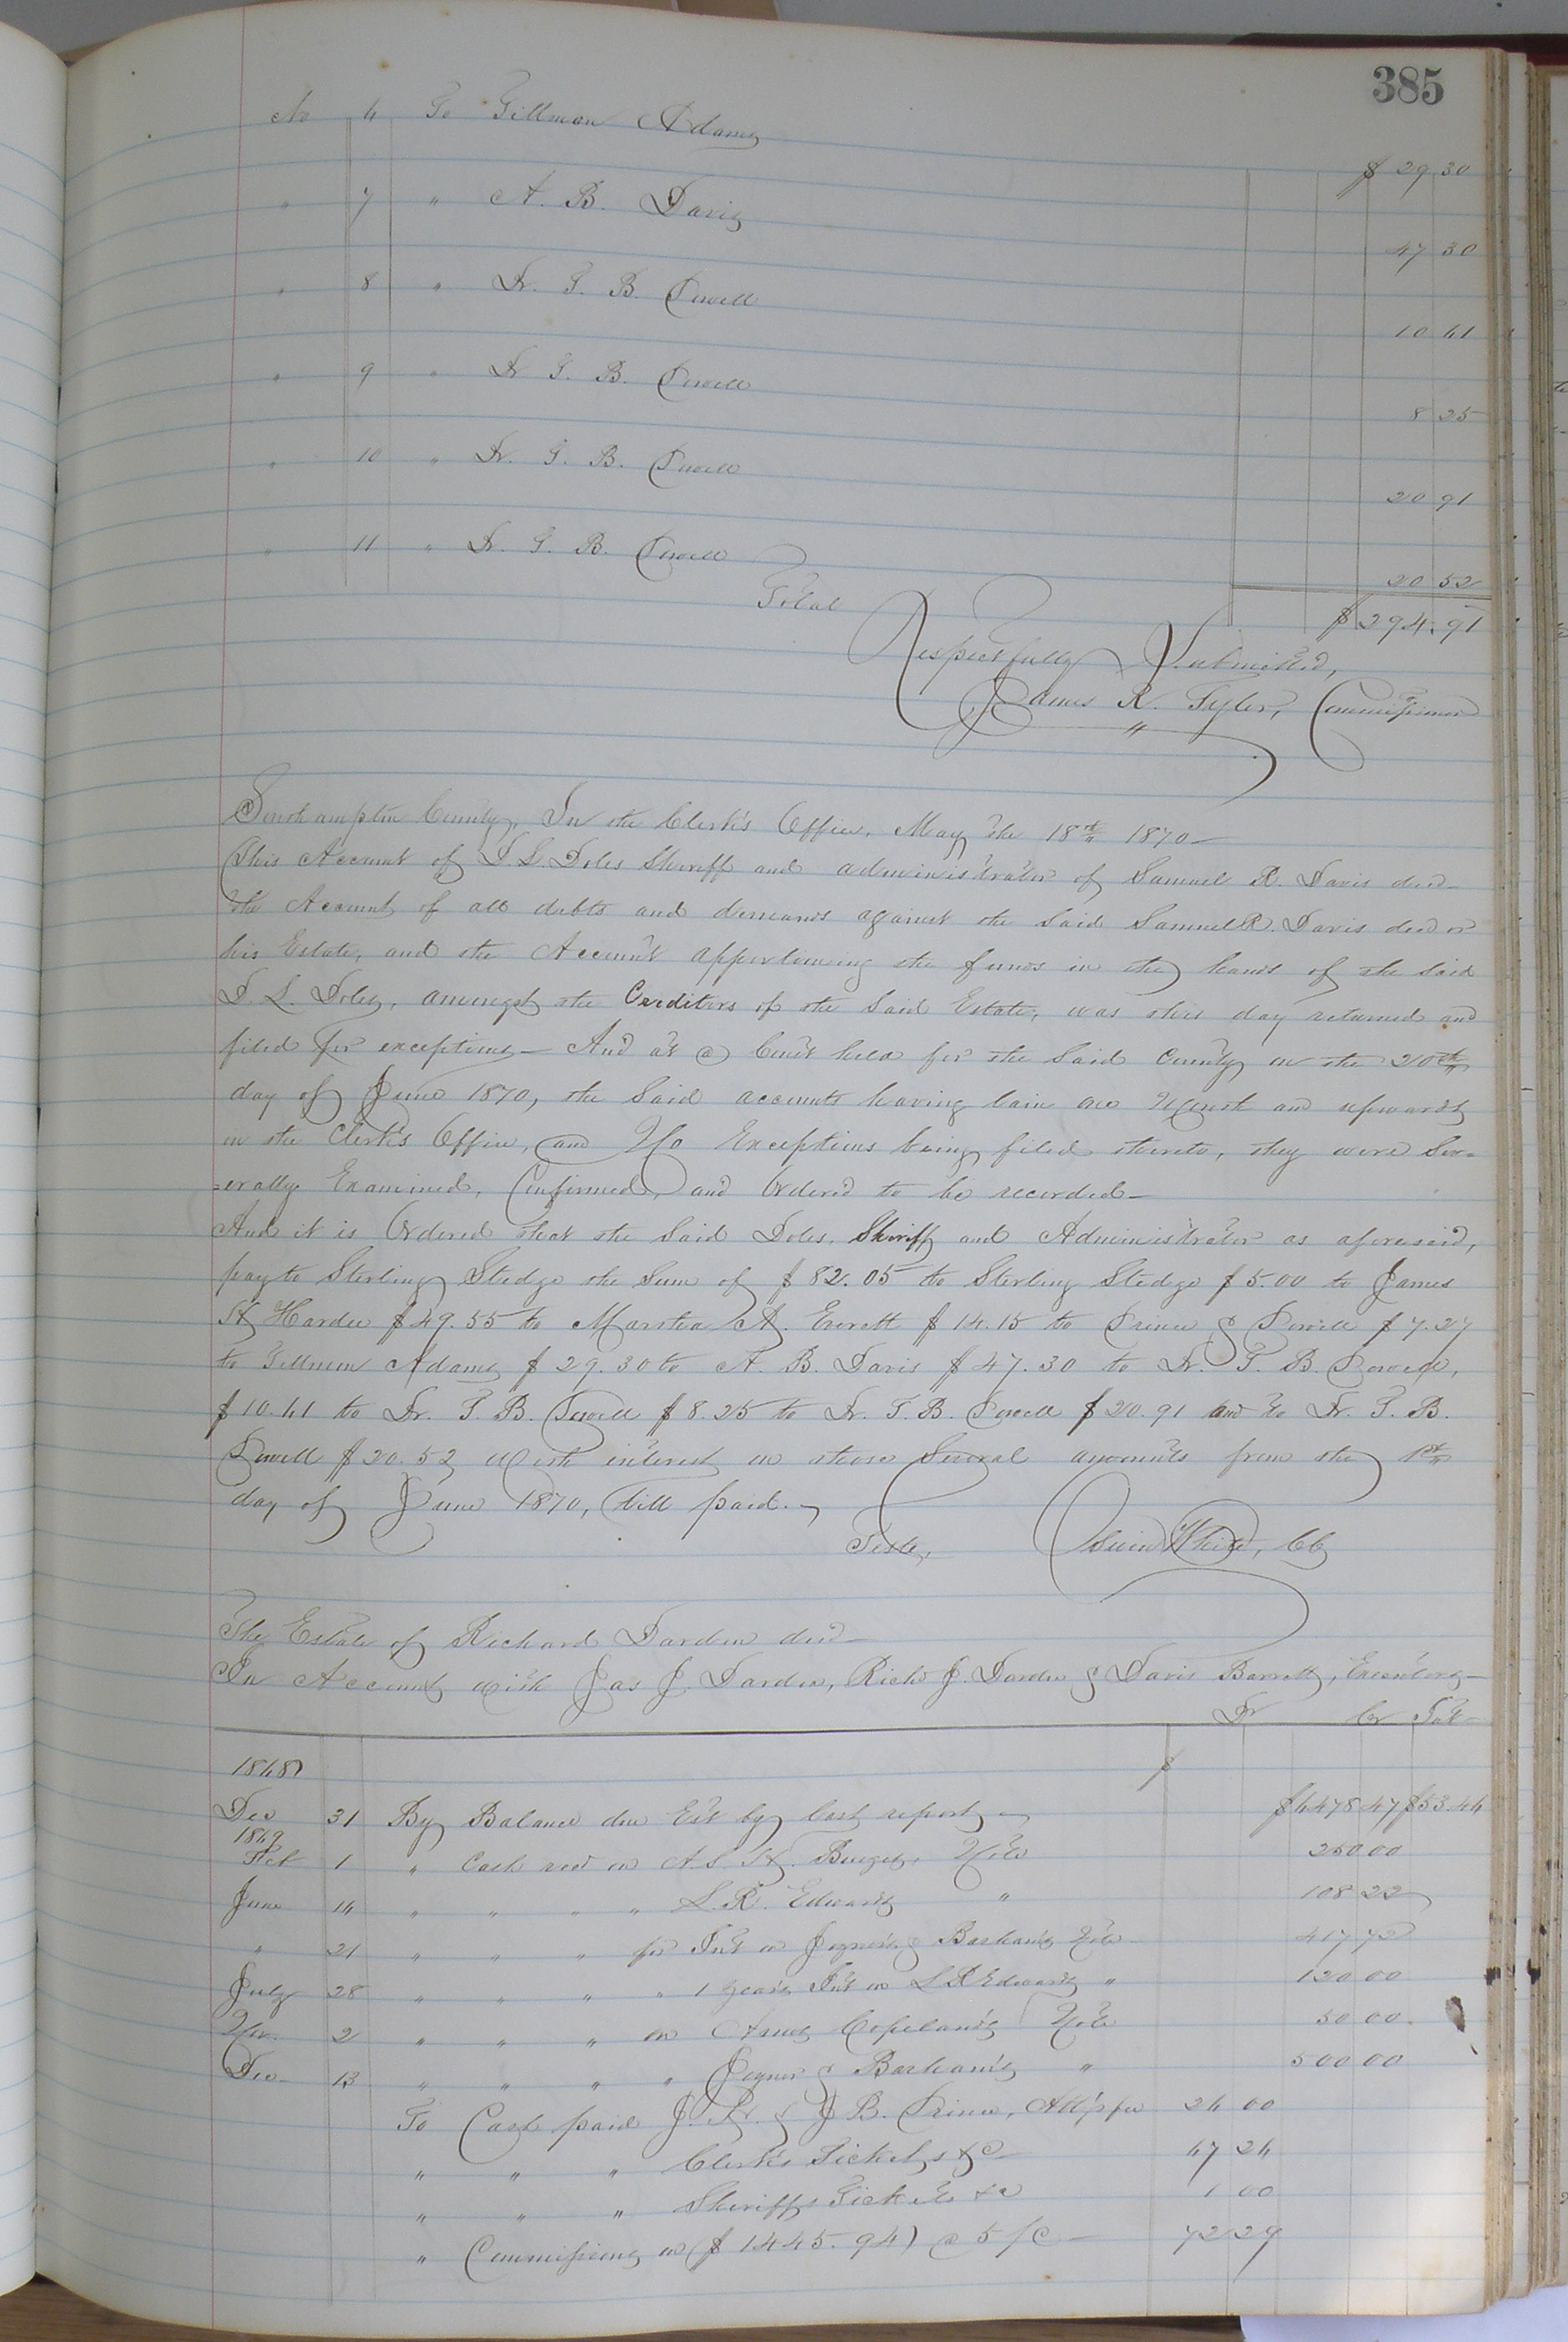 385
No 4 To Tillman Adams $ 29.30
" 7 " A. B. Davis 47 30
" 8 " Dr. T. B. Powell 10 41
" 9 " Dr T. B. Powell 8 25
" 10 " Dr. T. B. Powell 20 91
" 11 " Dr. T. B. Powell 20 52
Total $ 294.91
Respectfully Submitted,
James R. Tyler, Commissioner
Southampton County, In the Clerk's Office, May the 18th 1870—
This Account of J. L. Doles Sheriff and administrator of Samuel R. Davis decd
the Account of all debts and demands against the said Samuel R. Davis decd or
his Estate, and the Account apportioning the funds in the hands of the said
J L. Doles, amongst the Creditors of the said Estate, was this day returned and
filed for exceptions— And at a Court held for the said County on the 20th
day of June 1870, the said accounts having lain one Month and upwards
in the Clerk's Office, and No Exceptions being filed thereto, they were Sev=
=erally Examined, Confirmed, and Ordered to be recorded—
And it is Ordered that the said Doles, Sheriff and Administrator as aforesaid,
pay to Sterling Sledge the Sum of $ 82.05 to Sterling Sledge $ 5.00 to James
H Hardee $ 49.55 to Martha A. Everett $ 14.15 to Prince & Powell $ 7.27
to Tillman Adams $ 29.30 to A. B. Davis $ 47.30 to Dr. T. B. Powell,
$ 10.41 to Dr. T. B. Powell $ 8.25 to Dr. T. B. Powell $ 20.91 and to Dr. T. B.
Powell $ 20.52 with interest on those Several amounts from the 1st
day of June 1870, till paid.—
Teste, White, CC
The Estate of Richard Darden decd—
In Account with Jas J. Darden, Richd J. Darden & Davis Barrett, Executors—
Dr Cr Int
1848 $
Dec 31 By Balance due Est by last report— $4478 47 $53.44
1849
Feb 1 " Cash recd on A. S. H. Burges, Note 250 00
June 14 " " " " L. R. Edwards " 108 22
" 21 " " " for Int on Joyner's & Barham's Note 417 72
July 28 " " " " 1 year's Int on L R Edwards " 120 00
Nov. 2 " " " on Amos Copeland's Note 50 00
Dec 13 " " " " Joyner & Barham's " 500 00
To Cash paid J. H. & J B. Prince, Att'ys fee 24 00
" " " Clerk's Tickets &c 47 24
" " " Sheriffs Tickets &c 1 00
" Commissions on ($ 1445.94) @ 5 pC— 72 29